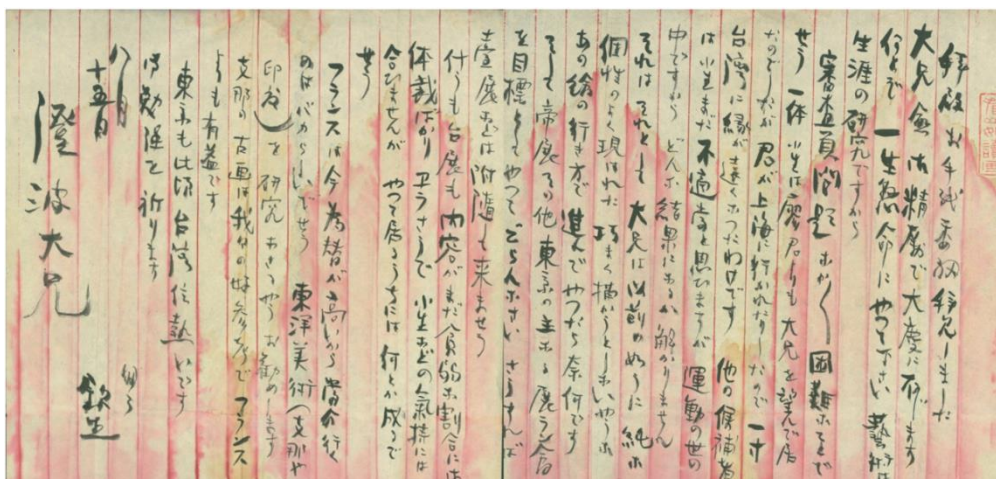 拝啓 お手紙委細拝見しました
大兄愈御精励で大慶に存じます
何とぞ一生懸命にやつて下さい 藝術は
生涯の研究ですから
審査員問題なかなか困難なことで
せう 一体小生は廖君よりも大兄を望んで居
たのでしたが 君が上海に行かれたりしたので 一寸
台湾に縁が遠くなつたわけです 他の候補者
は小生まだ不適当と思ひますが 運動の世の
中ですから どんな結果になるか解かりません
それはそれとして 大兄は以前の如うに純な
個性のよく現はれた 巧まく描かうとしないやうな
あの繪の行き方で進んでやつたら奈何です
そして帝展その他東京の主なる展ラン会
を目標としてやつてごらんなさい さうすれば
臺展などは附随して来ませう
什うも台展も内容がまだ貧弱な割合には
体裁ばかりエラさうで 小生などの氣持には
合ひませんが やつて居るうちには何とか成るで
せう
フランスは今為替が高いから當分行く
のはバカらしいでせう 東洋美術(支那や
印度)を研究なさるやうお勧めします
支那の古画は我々の好参考で フランス
よりも有益です
東京も此頃台湾位熱いです
御勉強を祈ります
匆々
八月
十五日
欽生
澄波大兄